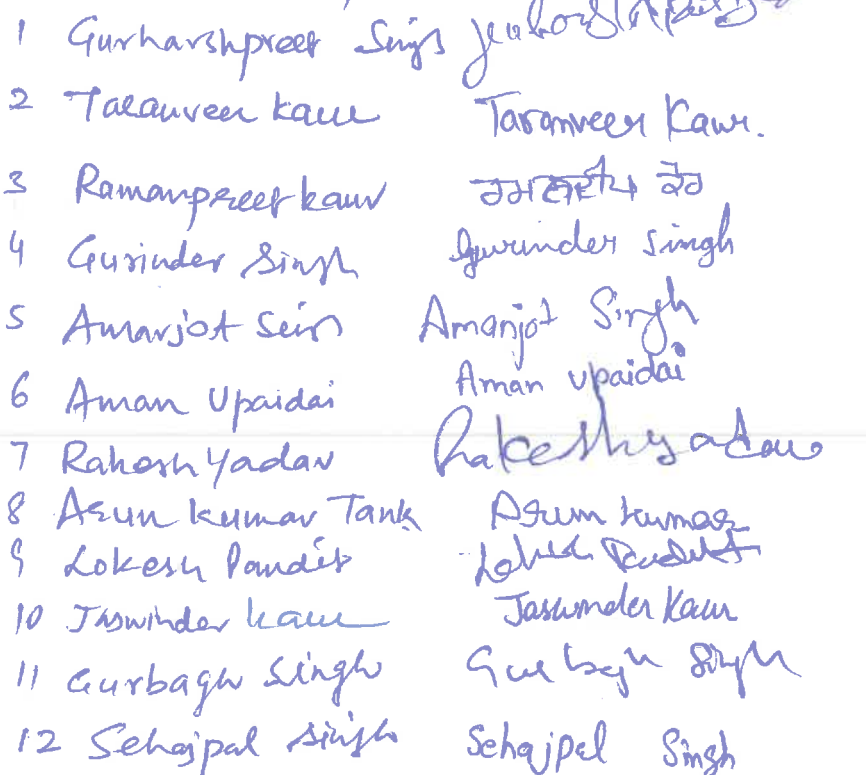 1 Gurharshpreet Singh
2 Taranveer Kaur Taranveer Kaur.
3 Ramanpreet kaur ਰਮਨਪ੍ਰੀਤ ਕੌਰ
4 Gurinder Singh Gurinder Singh
5 Amarjot Singh Amanjot Singh
6 Aman Upaidai Aman Upaidai
7 Rakesh Yadav Rakesh yadav
8 Arun kumar Tank Arun kumar
9 Lokesh Pandit
10 Jaswinder kaur Jaswinder Kaur
11 Gurbagh Singh Gurbagh Singh
12 Sehajpal Singh Sehajpal Singh